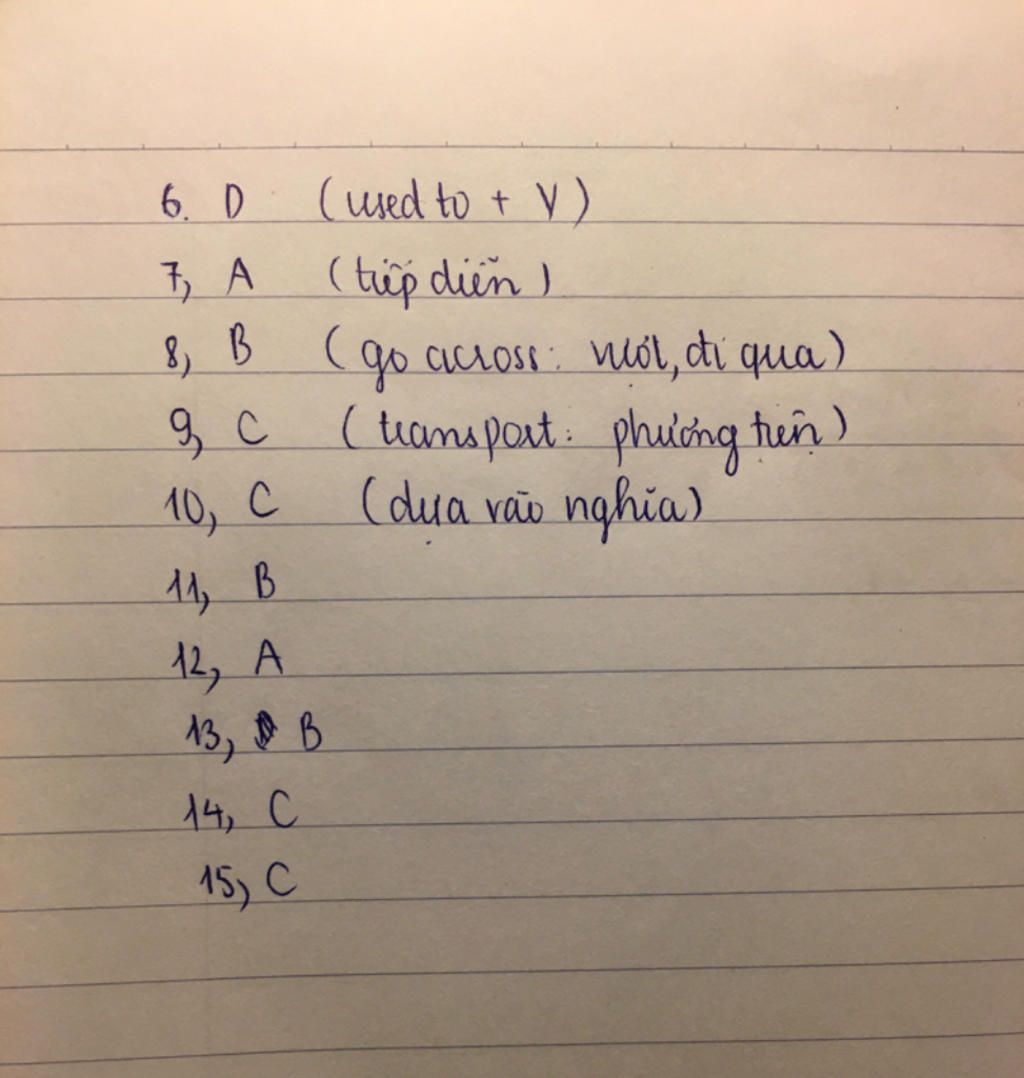 6. D (used to + V)
7, A (tiếp diễn)
8, B (go across: vượt, đi qua)
9, C (transport: phương tiện)
10, C (dựa vào nghĩa)
11, B
12, A
13, B
14, C
15, C